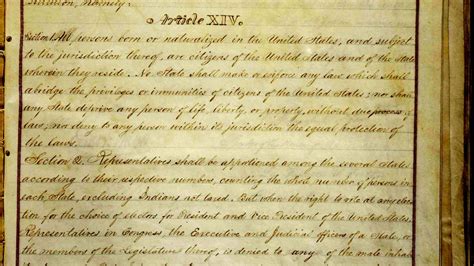 namely:
Article XIV.
Section 1. All persons born or naturalized in the United States, and subject
to the jurisdiction thereof, are citizens of the United States and of the State
wherein they reside. No State shall make or enforce any law which shall
abridge the privileges or immunities of citizens of the United States; nor shall
any State deprive any person of life, liberty, or property, without due process of
law; nor deny to any person within its jurisdiction the equal protection of
the laws.
Section 2. Representatives shall be apportioned among the several States
according to their respective numbers, counting the whole number of persons in
each State, excluding Indians not taxed. But when the right to vote at any elec
tion for the choice of electors for President and Vice President of the United States,
Representatives in Congress, the Executive and Judicial officers of a State, or
the members of the Legislature thereof, is denied to any of the male inhab